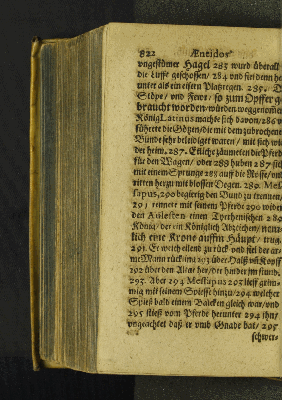 822 Æneidos
vngestümer Hagel 283 wurd überall
die Lufft geschossen/ 284 vnd fiel denn her
unter als ein eisern Platzregen. 285. D
Töpe/ vnd Fewr/ so zum Opffer g
braucht worden/ würden weggenommen
König Latinus machte sich davon/ 286
führete die Götzen/ die mit dem zubrochenen
Bunde sehr beleidiget waren/ mit sich wie
der heim. 287. Etliche zäumeten die Pferde
für den Wagen/ oder 288 huben 287 sich
mit einem Sprunge 288 auff die Rosse/ vnd
ritten herzu mit blossen Degen. 289. Mes
sapus, 290 begierig den Bund zu trennen/
291 rennete mit seinem Pferde 290 wider
den Aulesten einen Tyrrhenischen 289
König/ der ein Königlich Abzeichen/ nem
lich eine Krone auffm Häupt/ trug.
291. Er weich ellend zu rück vnd fiel der ar
me Mann rücklings 293 über Halß vn Kopff
292 über den Altar her/ der hinder jm stund.
293. Aber 294 Messapus 293 lieff grim-
mig mit seinem Spiesse hinzu/ 294 welcher
Spieß bald einem Balcken gleich war/ vnd
295 stieß vom Pferde herunter 294 ihn/
vngeachtet daß er vmb Gnade bat/ 295
schwer-